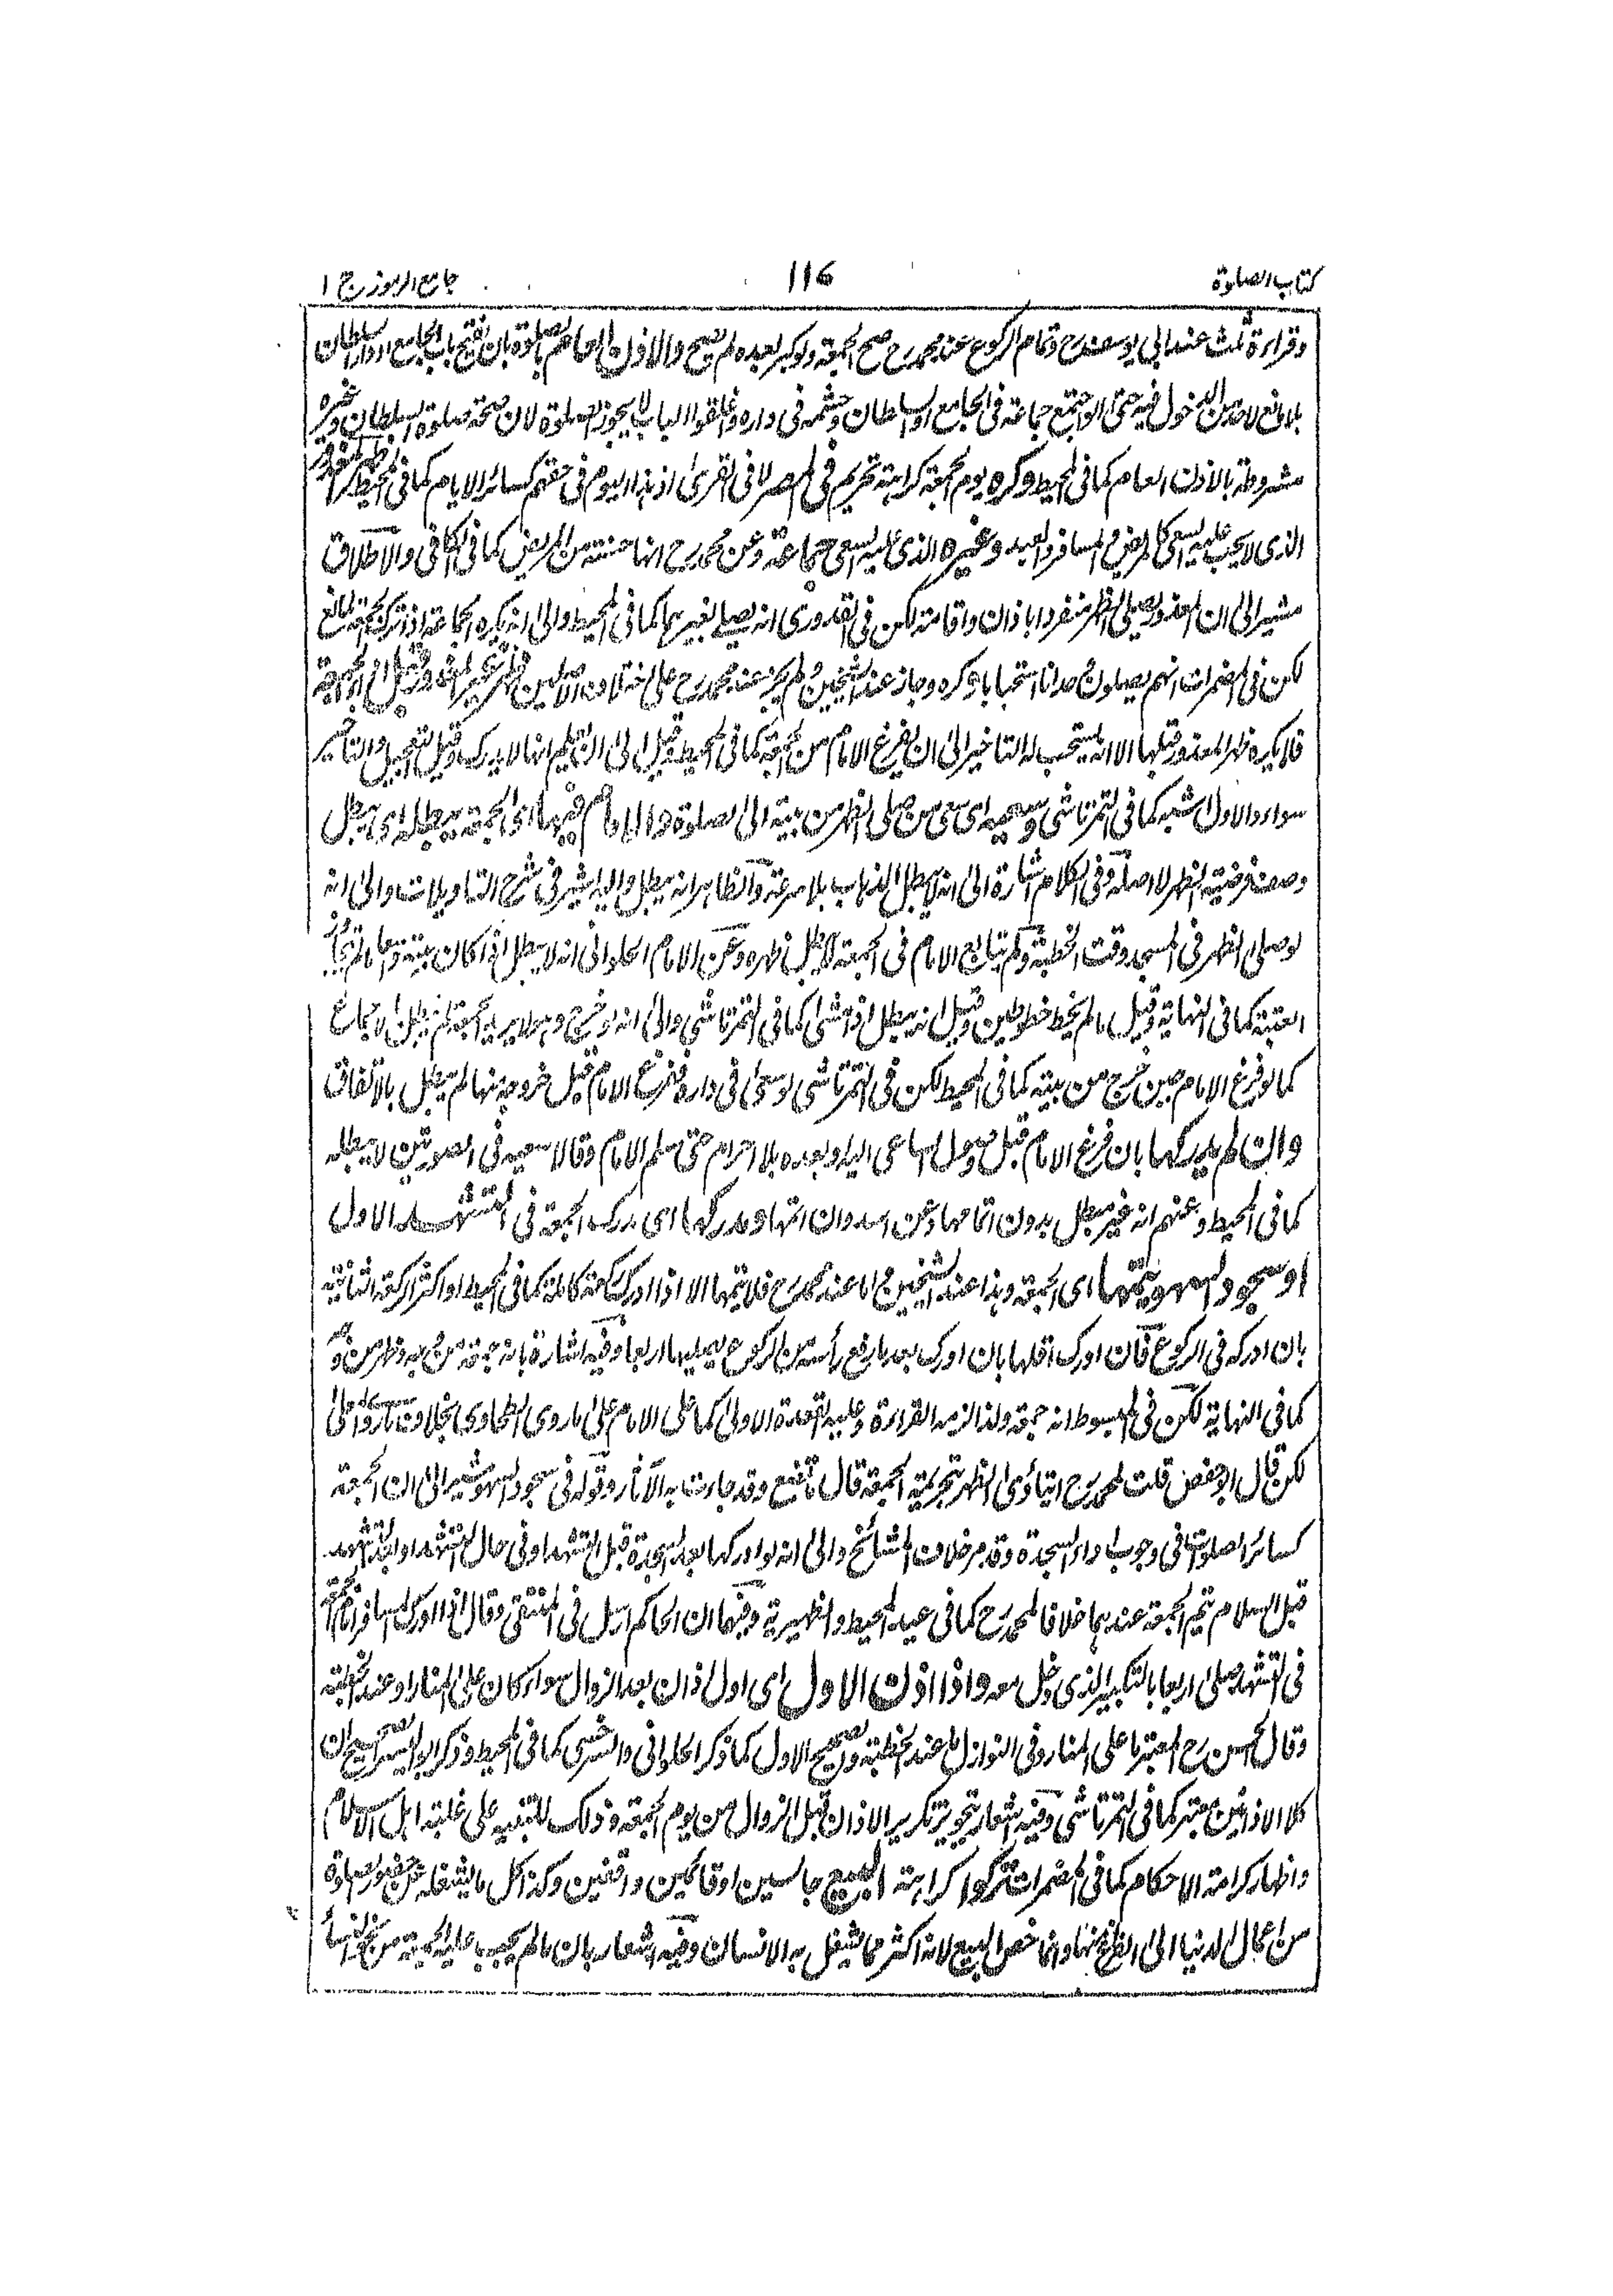 كتاب الصلوة
116
جامع الرموز ج ١
وقراءة ثلث عند ابى يوسف رح وتمام الركوع عند محمد رح صح الجمعة ولو كبر بعده لم يصح والاذن العام بالصلوة بان يفتح باب الجامع او دار السلطان
بلا مانع لاحد من الدخول فيه حتى لو اجتمع جماعة فى الجامع او السلطان وحشمه فى داره واغلقوا الباب لا يجوز الصلوة لان صحة صلوة السلطان وغيره
مشروطة بالاذن العام كما فى المحيط وكره يوم الجمعة كراهة تحريم فى المصر لا فى القرى اذ هذا اليوم فى حقهم كسائر الايام كما فى المحيط ظهر المعذور
الذى لا يجب عليه السعى كالمريض والمسافر والعبد وغيره الذى عليه السعى جماعة وعن محمد رح انها حسنة من المريض كما فى الكافى والاطلاق
مشير الى ان المعذور يصلى الظهر منفردا باذان واقامة لكن فى القدورى انه يصلى بغيرهما كما فى المحيط والى انه يكره الجماعة اذا ترك الجمعة لمانع
لكن فى المضمرات انهم يصلون وحدانا استحبابا وكره وجاز عند الشيخين ولم يجز عند محمد رح على اختلاف الاصلين ظهر غير المعذور قبل اى الجمعة
فلا يكره ظهر المعذور قبلها الا انه يستحب له التاخير الى ان يفرغ الامام من الجمعة كما فى المحيط وقيل الى ان يعلم انها لا يدرك وقيل التعجيل والتاخير
سواء والاول اشبه كما فى التمرتاشى وسعيه اى سعى من صلى الظهر من بيته الى الصلوة والامام فيها اى الجمعة يبطله اى يبطل
وصف فرضية الظهر لا اصله وفى الكلام اشارة الى انه لا يبطل الذهاب بلا سرعة والظاهر انه يبطل واليه اشير فى شرح التاويلات والى انه
لو صلى الظهر فى المسجد وقت الخطبة ولم يتابع الامام فى الجمعة لا يبطل ظهره وعن الامام الحلوانى انه لا يبطل اذا كان بيته واسعا ما لم يجاوز
العتبة كما فى النهاية وقيل ما لم يخط خطوتين وقيل انه يبطل اذا مشى كما فى التمرتاشى والى انه لو خرج وهو لا يريد الجمعة لم يبطل بالاجماع
كما لو فرغ الامام حين خرج من بيته كما فى المحيط لكن فى التمرتاشى لو سعى فى داره وفرغ الامام قبل خروجه منها لم يبطل بالاتفاق
وان لم يدركها بان فرغ الامام قبل وصول الساعى اليه او بعده بلا احرام حتى سلم الامام وقالا سعيه فى الصورتين لا يبطله
كما فى المحيط وعنهم انه غير مبطل بدون اتمامها ومدركها اى مدرك الجمعة فى التشهد الاول
او سجود السهو يتمها اى الجمعة وهذا عند الشيخين واما عند محمد رح فلا يتمها الا اذا ادرك ركعة كاملة كما فى المحيط او اكثر الركعة الثانية
بان ادركه فى الركوع فان ادرك اقلها بان ادرك بعد ما رفع رأسه من الركوع يصليها اربعا وفيه اشارة بانه جمعة من وجه وظهر من وجه
كما فى النهاية لكن فى المبسوط انه جمعة ولذا لزمه القراءة وعليه القعدة الاولى كما على الامام على ما روى الطحاوى بخلاف ما روى المعلى
لكن قال ابو حفص قلت لمحمد رح ايتأدى الظهر بتحريمة الجمعة قال ما تصنع وقد جاءت به الآثار وقوله فى سجود السهو مشير الى ان الجمعة
كسائر الصلوات فى وجوب اداء السجدة وقد مر خلاف المشائخ والى انه لو ادركها بعد السجدة قبل التشهد او فى حال التشهد او بعد التشهد
قبل السلام يتم الجمعة عندهما خلافا لمحمد رح كما فى عيد المحيط والظهيرية وفيها ان الحاكم ارسل فى المنتقى وقال اذا ادرك المسافر امام الجمعة
فى التشهد صلى اربعا بالتكبير الذى دخل معه واذا اذن الاول اى اول اذان بعد الزوال سواء كان على المنار او عند الخطبة
وقال الحسن رح المعتبر ما على المنار وفى النوازل ما عند الخطبة والصحيح الاول كما ذكر الحلوانى والسرخسى كما فى المحيط وذكر ابو اليسر الصحيح ان
كلا الاذانين معتبر كما فى التمرتاشى وفيه اشعار بتجويز تكرير الاذان قبل الزوال من يوم الجمعة وذلك للتنبيه على غلبة اهل الاسلام
واظهار كرامة الاحكام كما فى المضمرات تركوا كراهة البيع جالسين او قائمين واقفين وكذا كل ما يشغله عن حضور الصلوة
من اعمال الدنيا الى الفراغ منها وانما خص البيع لانه اكثر مما يشغل به الانسان وفيه اشعار بان ما لم يجب عليه الجمعة من نحو النساء